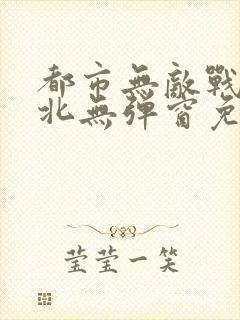 都市無敵戰
北無彈窗免
莹莹一笑